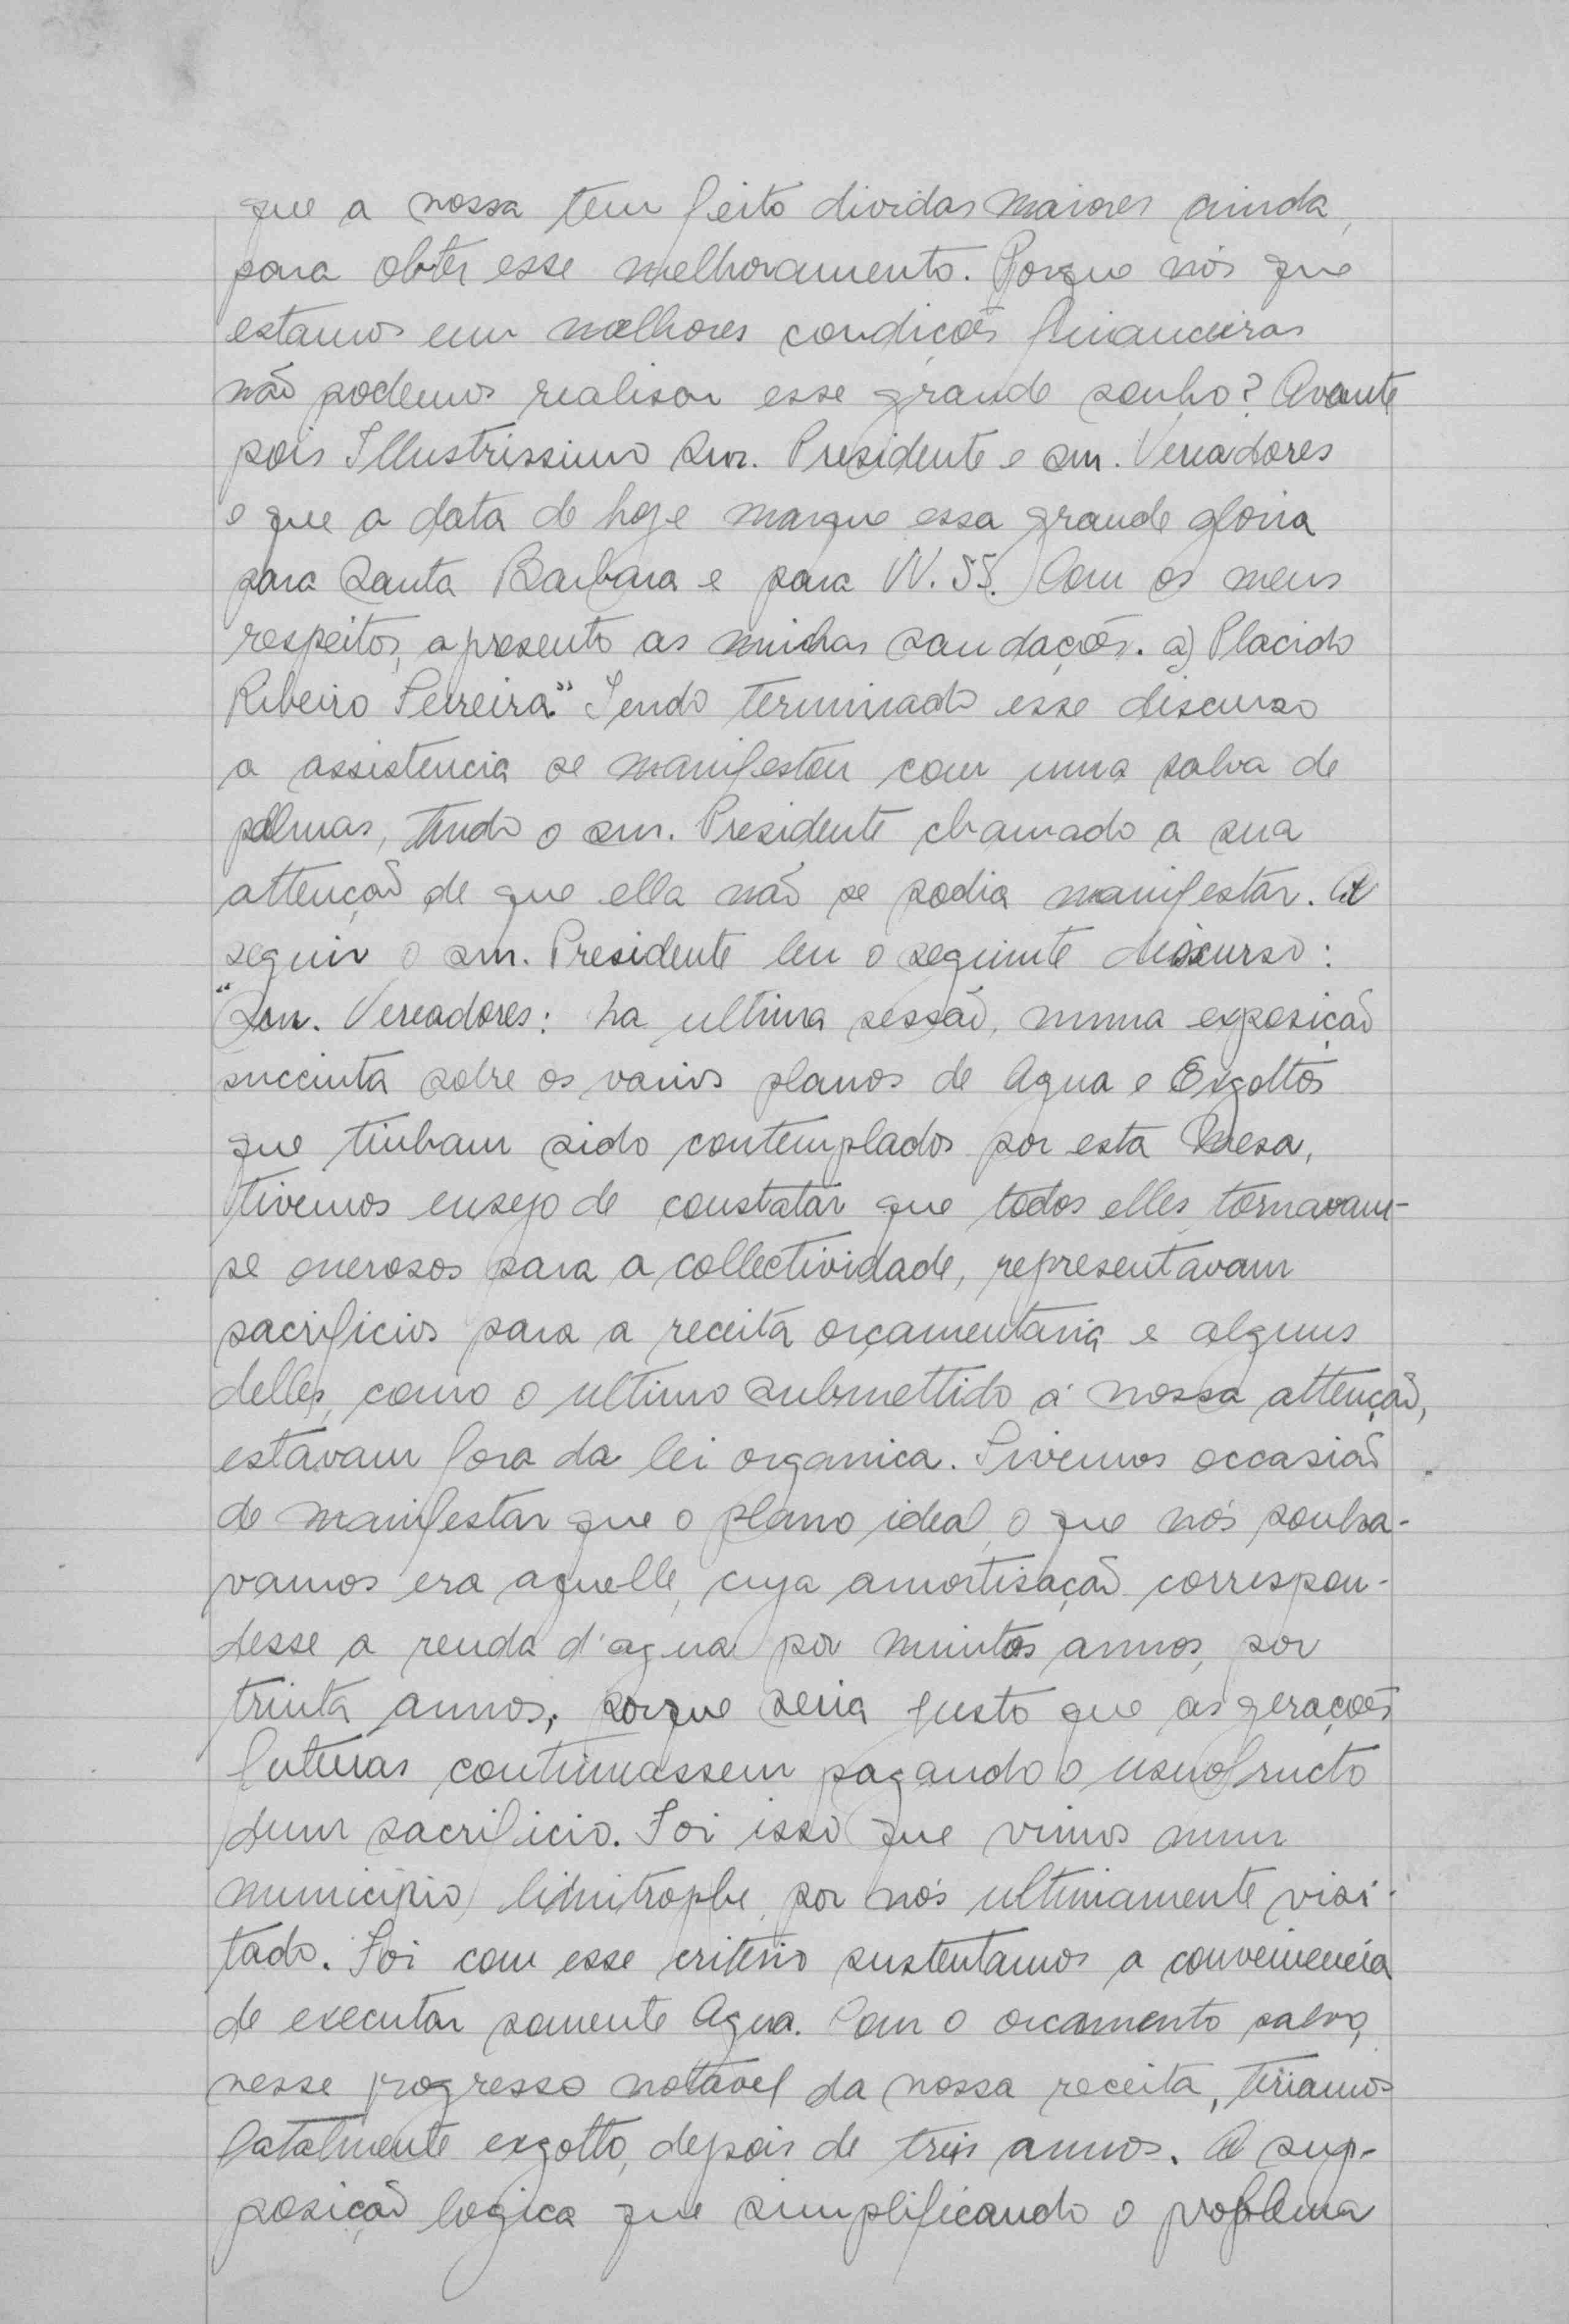 que a nossa tem feito dividas maiores ainda,
para obter esse melhoramento. Porque nós que
estamos em melhores condições financeiras
não podemos realisar esse grande sonho? Avante
pois Illustrissimo Snr. Presidente e snr. Vereadores
e que a data de hoje marque essa grande gloria
para Santa Barbara e para VV. SS. Com os meus
respeitos, apresento as minhas saudações. a) Placido
Ribeiro Ferreira." Tendo terminado esse discurso
a assistencia se manifestou com uma salva de
palmas, tendo o snr. Presidente chamado a sua
attenção de que ella não se podia manifestar. A
seguir o snr. Presidente leu o seguinte discurso:
"Snr. Vereadores: na ultima sessão, numa exposição
succinta sobre os varios planos de Agua e Exgottos
que tinham sido contemplados por esta Mesa,
tivemos ensejo de constatar que todos elles tornavam-
se onerosos para a collectividade, representavam
sacrificios para a receita orçamentaria e alguns
delles, como o ultimo submettido á nossa attenção,
estavam fora da lei organica. Tivemos occasião
de manifestar que o plano ideal, o que nós sonha-
vamos era aquelle, cuja amortisação correspon-
desse a renda d'agua por muitos annos, por
trinta annos, porque seria justo que as gerações
futuras continuassem pagando o usuofructo
dum sacrificio. Foi isso que vimos num
municipio limitrophe, por nós ultimamente visi-
tado. Foi com esse criterio sustentamos a conveniencia
de executar somente Agua. Com o orcamento salvo,
nesse progresso notavel da nossa receita, teriamos
fatalmente exgotto, depois de tres annos. A sup-
posição logica que simplificando o problema